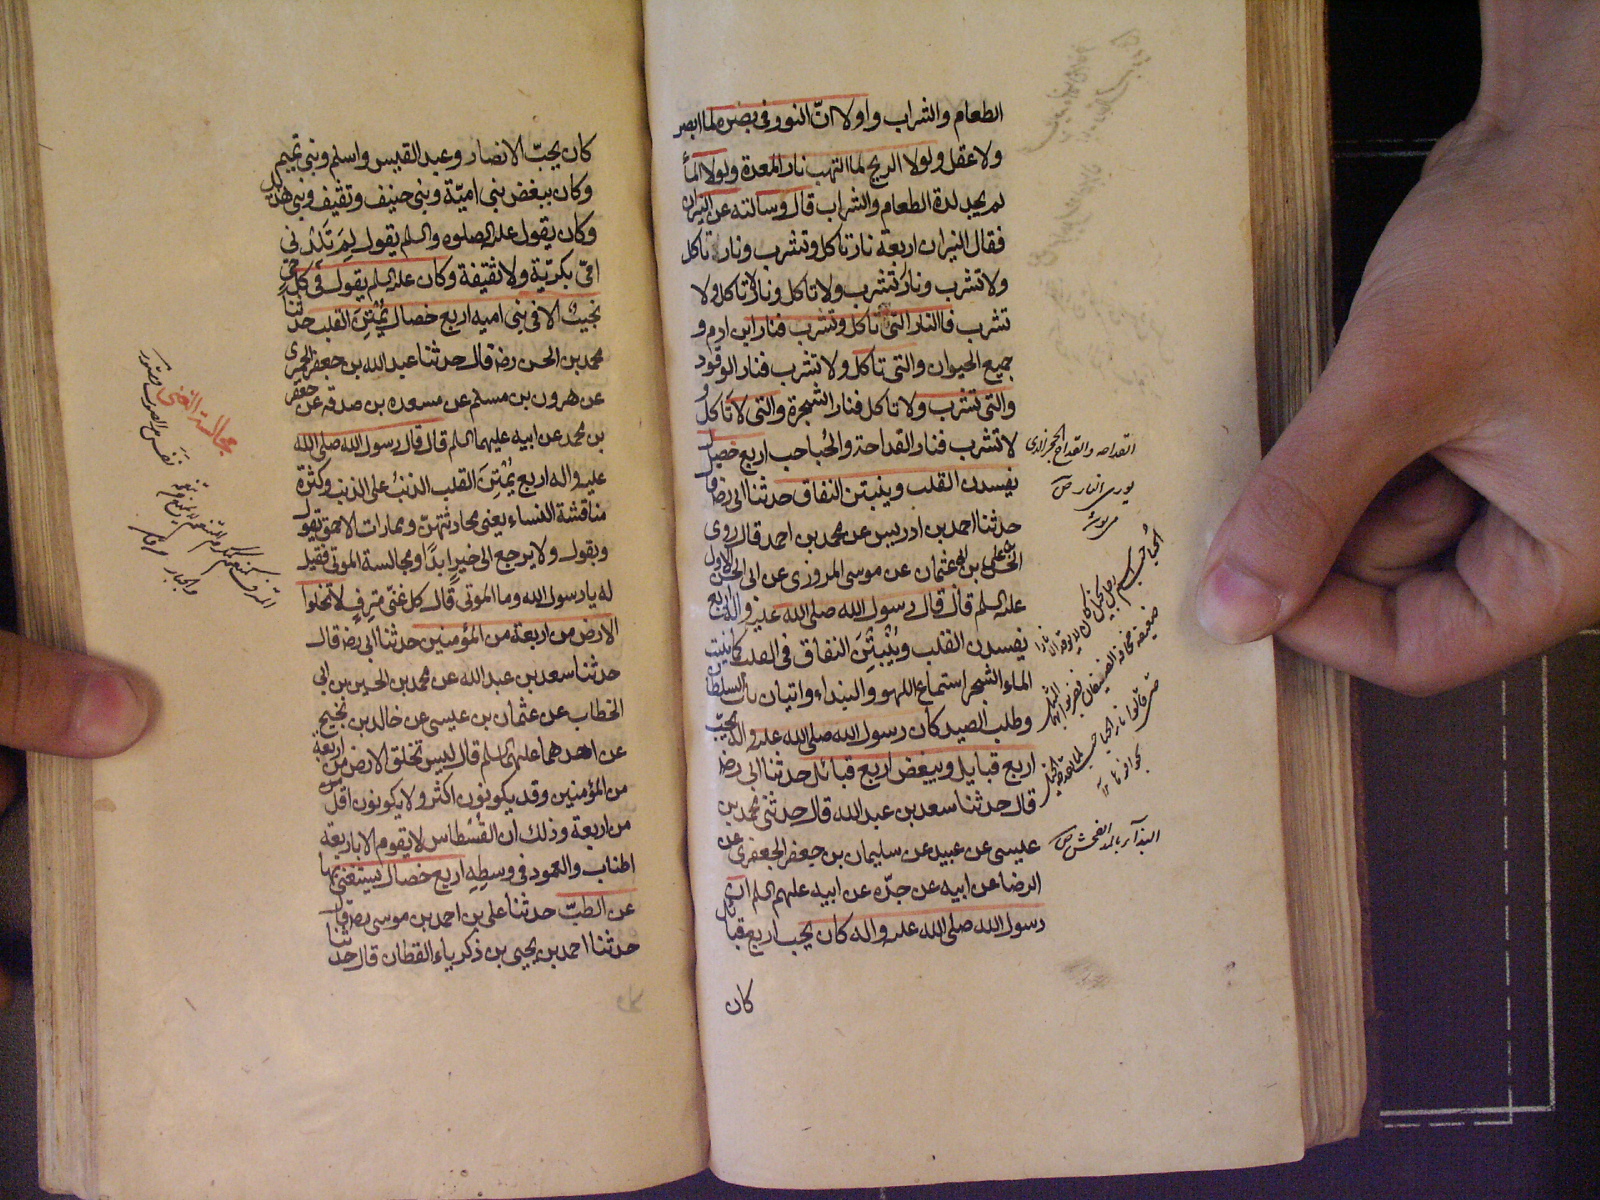 الطعام والشراب ولولا انّ النور فى بصره لما ابصر
ولا عقل ولولا الريح لما التهب نار المعدة ولولا الماٌ
لم يجد لذة الطعام والشراب قال وسالته عن النيران
فقال النيران اربعة نار تاكل وتشرب ونار تاكل
ولا تشرب ونار تشرب ولا تاكل ونار لا تاكل ولا
تشرب فاالنار التى تاكل وتشرب فنار ابن ادم و
جميع الحيوان والتى تاكل ولا تشرب فنار الوقود
والتى تشرب ولا تاكل فنار الشجرة والتى لا تاكل و
لا تشرب فنار القداحة والحباحب اربع خصال
يفسدن القلب وينبتن النفاق حدثنا ابى رضه قال
حدثنا احمد بن ادريس عن محمد بن احمد قال روى
الحسن على بن ابى عثمان عن موسى المروزى عن ابى الحسن الاول
عليه السلم قال قال رسول الله صلى الله عليه واله اربع
يفسدن القلب ويُنْبِتْنَ النفاق فى القلب كما ينبت
الماء الشجر استماع اللهو والبذاء واتيان باب السلطان
وطلب الصيد كان رسول الله صلى الله عليه واله يحبّ
اربع قبايل ويبغض اربع قبائل حدثنا ابى رضه
قال حدثنا سعد بن عبد الله قال حدثنى محمد بن
عليسى عن عبيد عن سليمان بن جعفر الجعفرى عن
الرضا عن ابيه عن جدّه عن ابيه عليهم السلم ان
رسول الله صلى الله عليه واله كان يحب اربع قبائل
كان
القداحه والقداح الحجر الذى
يورى النار ص
البذآء بالمد الفحش ص
كان يحبّ الانصار وعبد القيس واسلم وبنى تميم
وكان يبغض بنى اميّة وبنى حنيف وثقيف وبنى هذيل
وكان يقول عليه الصلوه والسلم يقول لم تَلِدْنى
امّى بكريّة ولا ثقيفة وكان عليه السلم يقول فى كل حىّ
نجيب الا فى بنى اميه اربع خصال يُمِتْنَ القلب حدثنا
محمد بن الحسن رضه قال حدثنا عبد الله بن جعفر الحميرى
عن هرون بن مسلم عن مسعده بن صدقه عن جعفر
بن محمد عن ابيه عليهما السلم قال قال رسول الله صلى الله
عليه واله اربع يُمْتِنَ القلب الذنبُ على الذنب وكثرة
مناقشة النساء يعنى محادثتهنّ وممارات الاحمق تقول
ويقول ولا يرجع الى خيرٍ ابدًا ومجالسة الموتى فقيل
له يا رسول الله وما الموتى قال كل غنّى مترفٍ لا تخلوا
الارض من اربعة من المؤمنين حدثنا ابى رضه قال
حدثنا سعد بن عبد الله عن محمد بن الحسين بن ابى
الخطاب عن عثمان بن عيسى عن خالد بن نجيح
عن احدهما عليهما السلم قال ليس تخلق الارض من اربعة
من المؤمنين وقد يكونون اكثر ولا يكونون اقل
من اربعة وذلك ان الفُسْطاس لا يقوم الا باربعة
اطناب والعمود فى وسطِهِ اربع خصال يستغنى بها
عن الطبّ حدثنا على بن احمد بن موسى رضه قال
حدثنا احمد بن يحيى بن ذكرياء القطان قال حدثنا
مجالسة الغنى